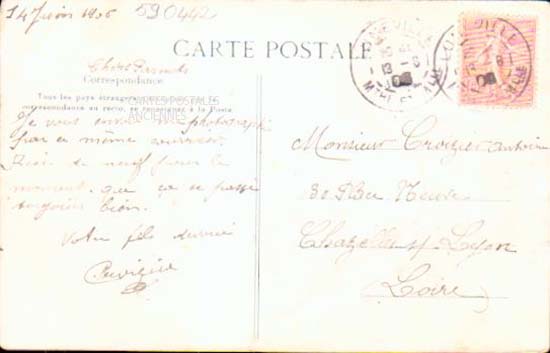 14 Juin 1906
590442
CARTE POSTALE
Chers Parents
Correspondance
Tous les pays étrangers
correspondance au recto, se renseigner à la Poste.
CARTES POSTALES
ANCIENNES
Je vous envoie ma photographie
par ce même courrier
Rien de neuf pour le
moment que ça se passe
toujours bien.
Votre fils dévoué
LUNÉVILLE
Monsieur Crozier Antoine
30 Rue Neuve
Chazelle s/ Lyon
Loire